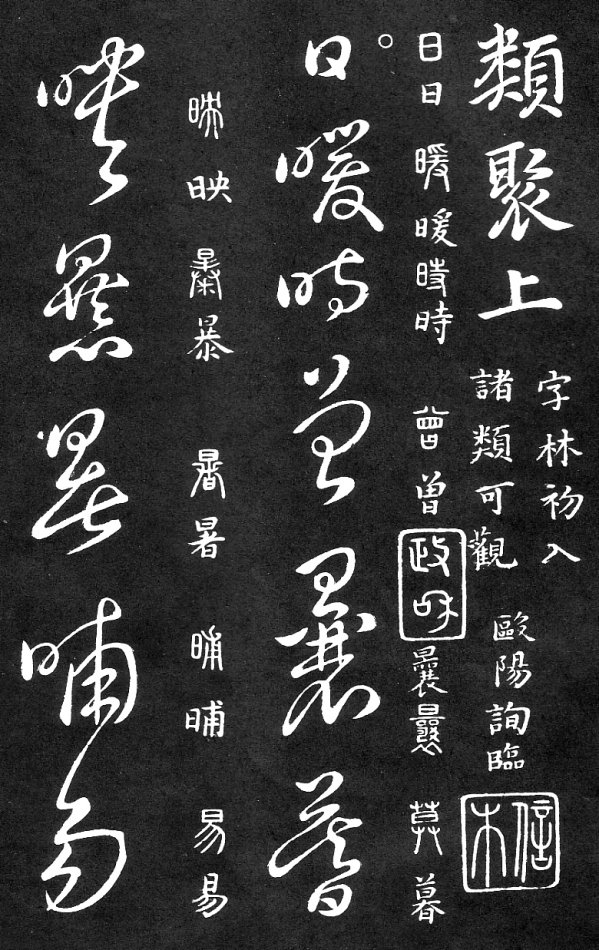 類聚上
字林初入
諸類可觀
歐陽詢臨
信本
日日 暖暖 時時 曾曾
政和
曩 莫暮
日暖時曾曩暮
映 暴暴 暑暑 晡晡 易易
映暴暑晡易